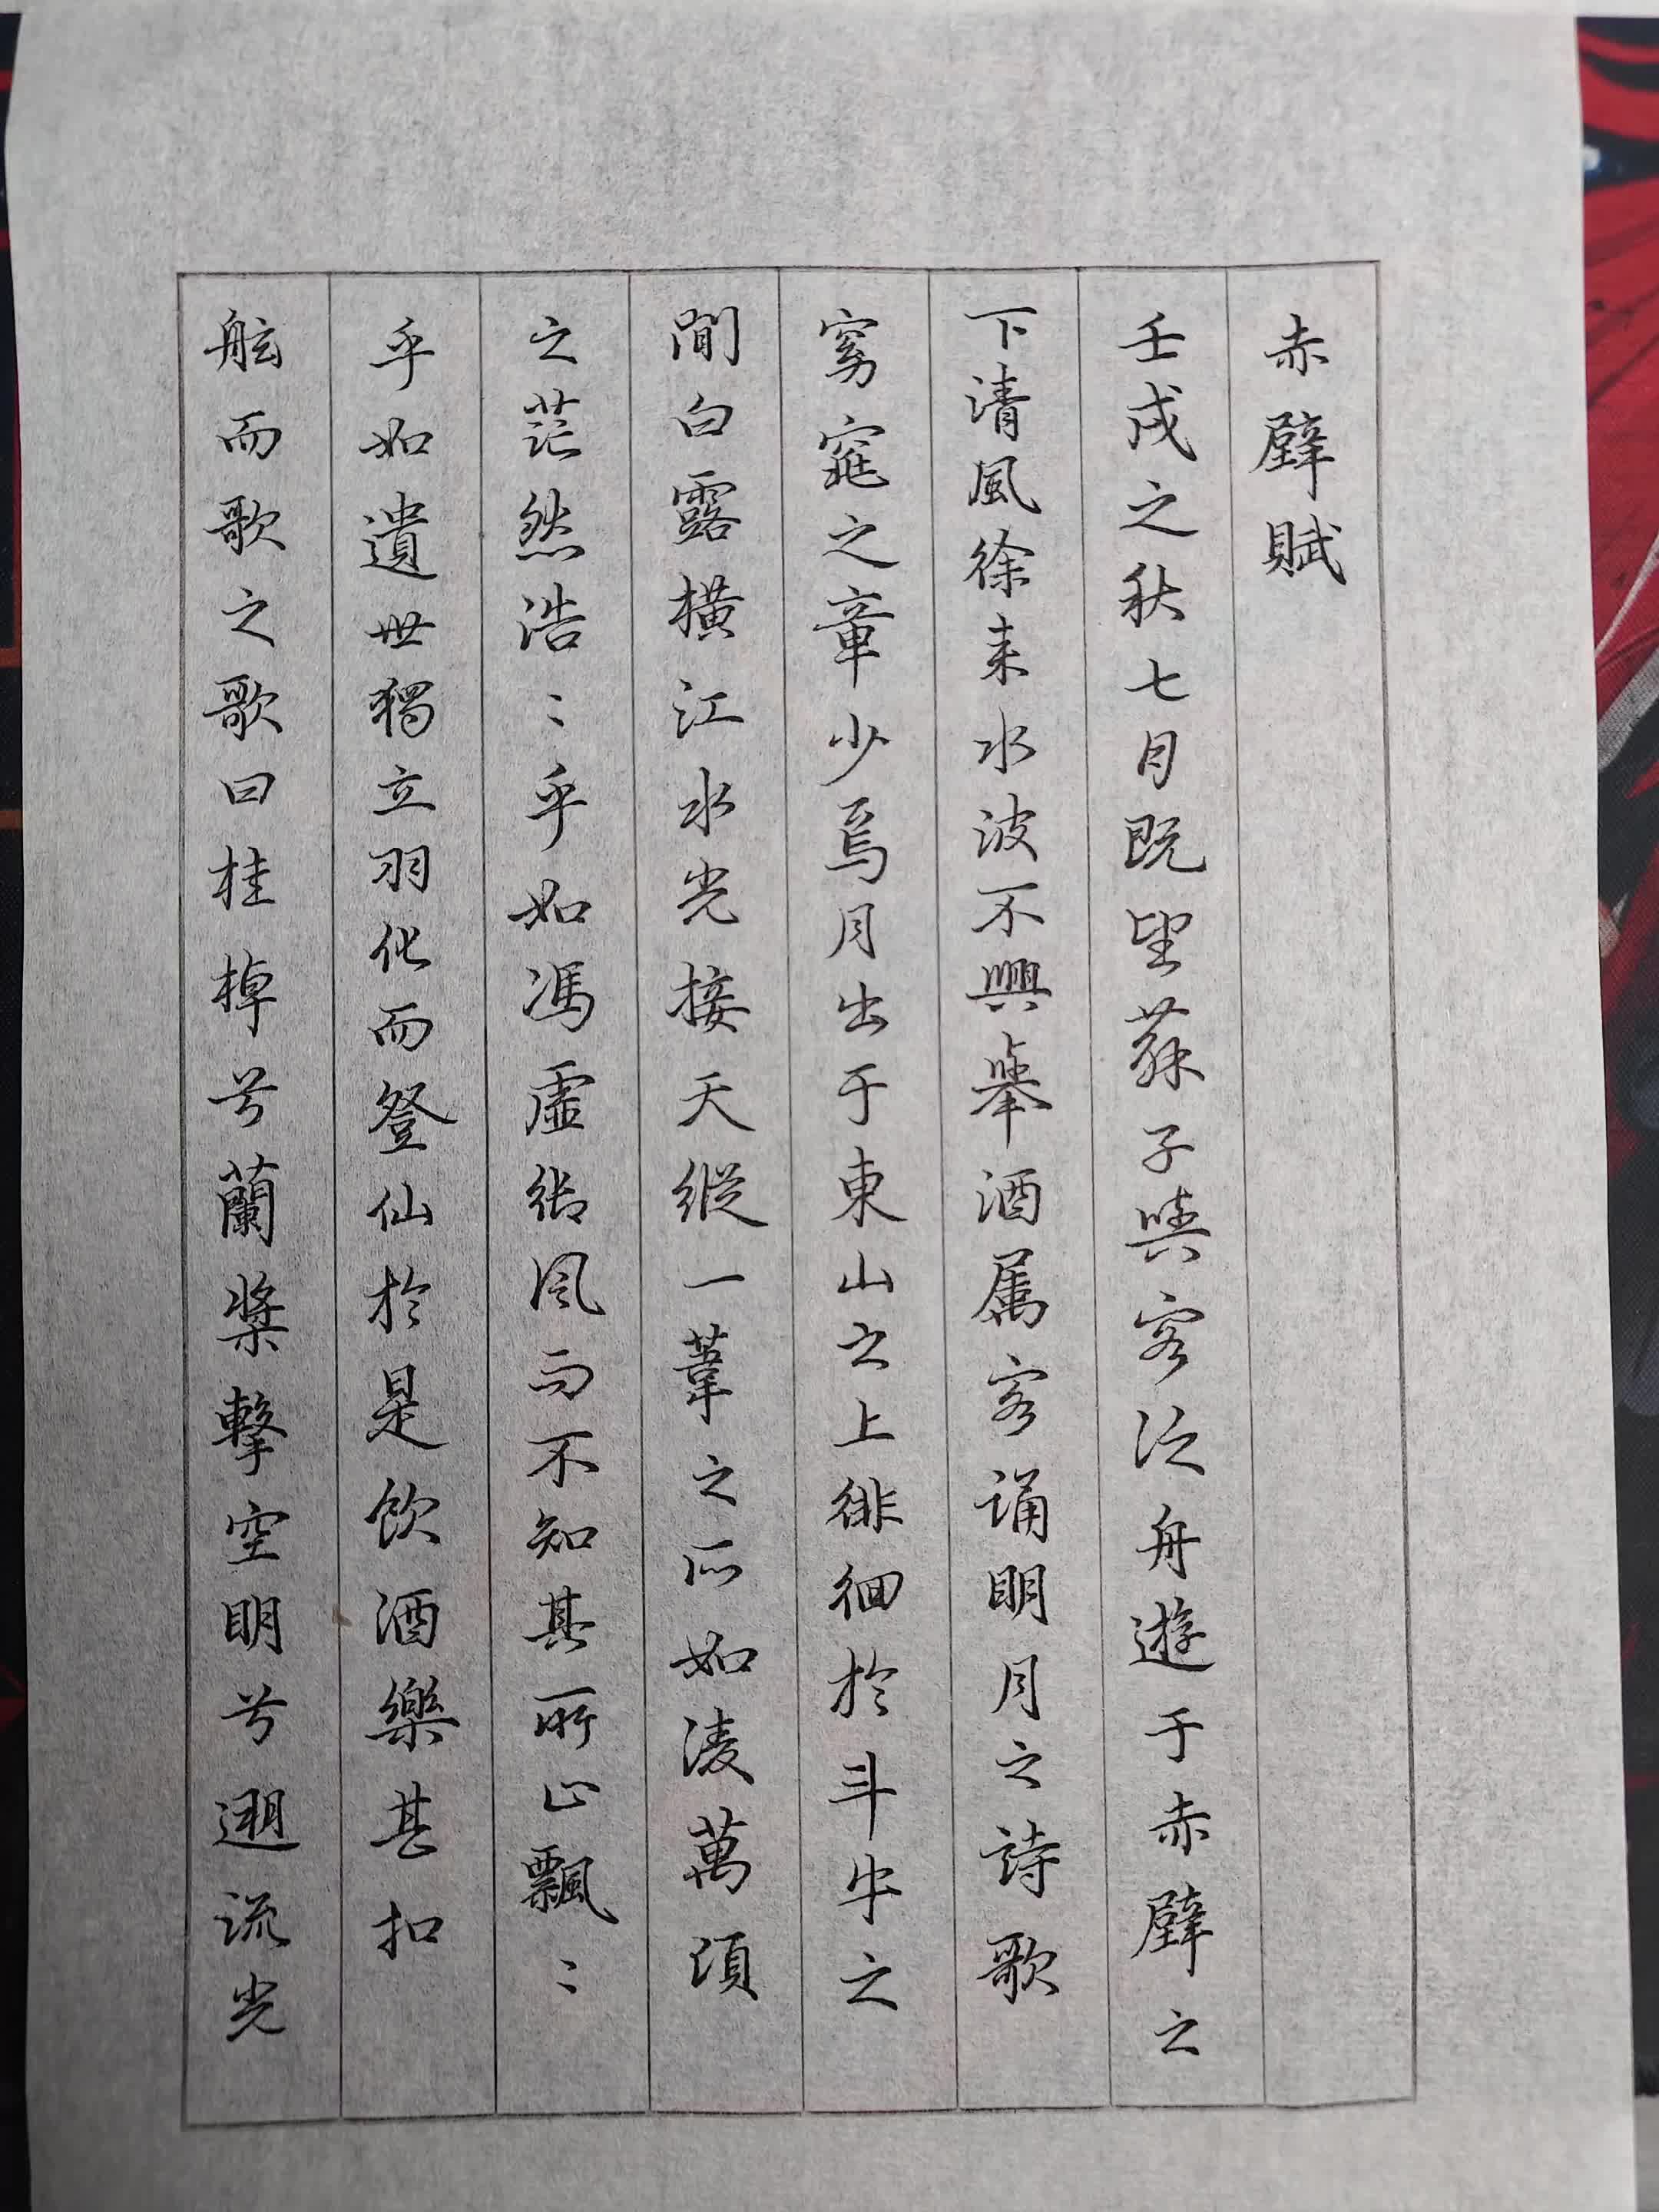 赤壁賦
壬戌之秋七月既望蘇子與客泛舟遊于赤壁之
下清風徐来水波不興舉酒属客誦明月之詩歌
窈窕之章少焉月出于東山之上徘徊於斗牛之
間白露橫江水光接天縱一葦之所如淩萬頃
之茫然浩〻乎如馮虚御風而不知其所止飄〻
乎如遺世獨立羽化而登仙於是飲酒樂甚扣
舷而歌之歌曰桂棹兮蘭槳擊空明兮遡流光